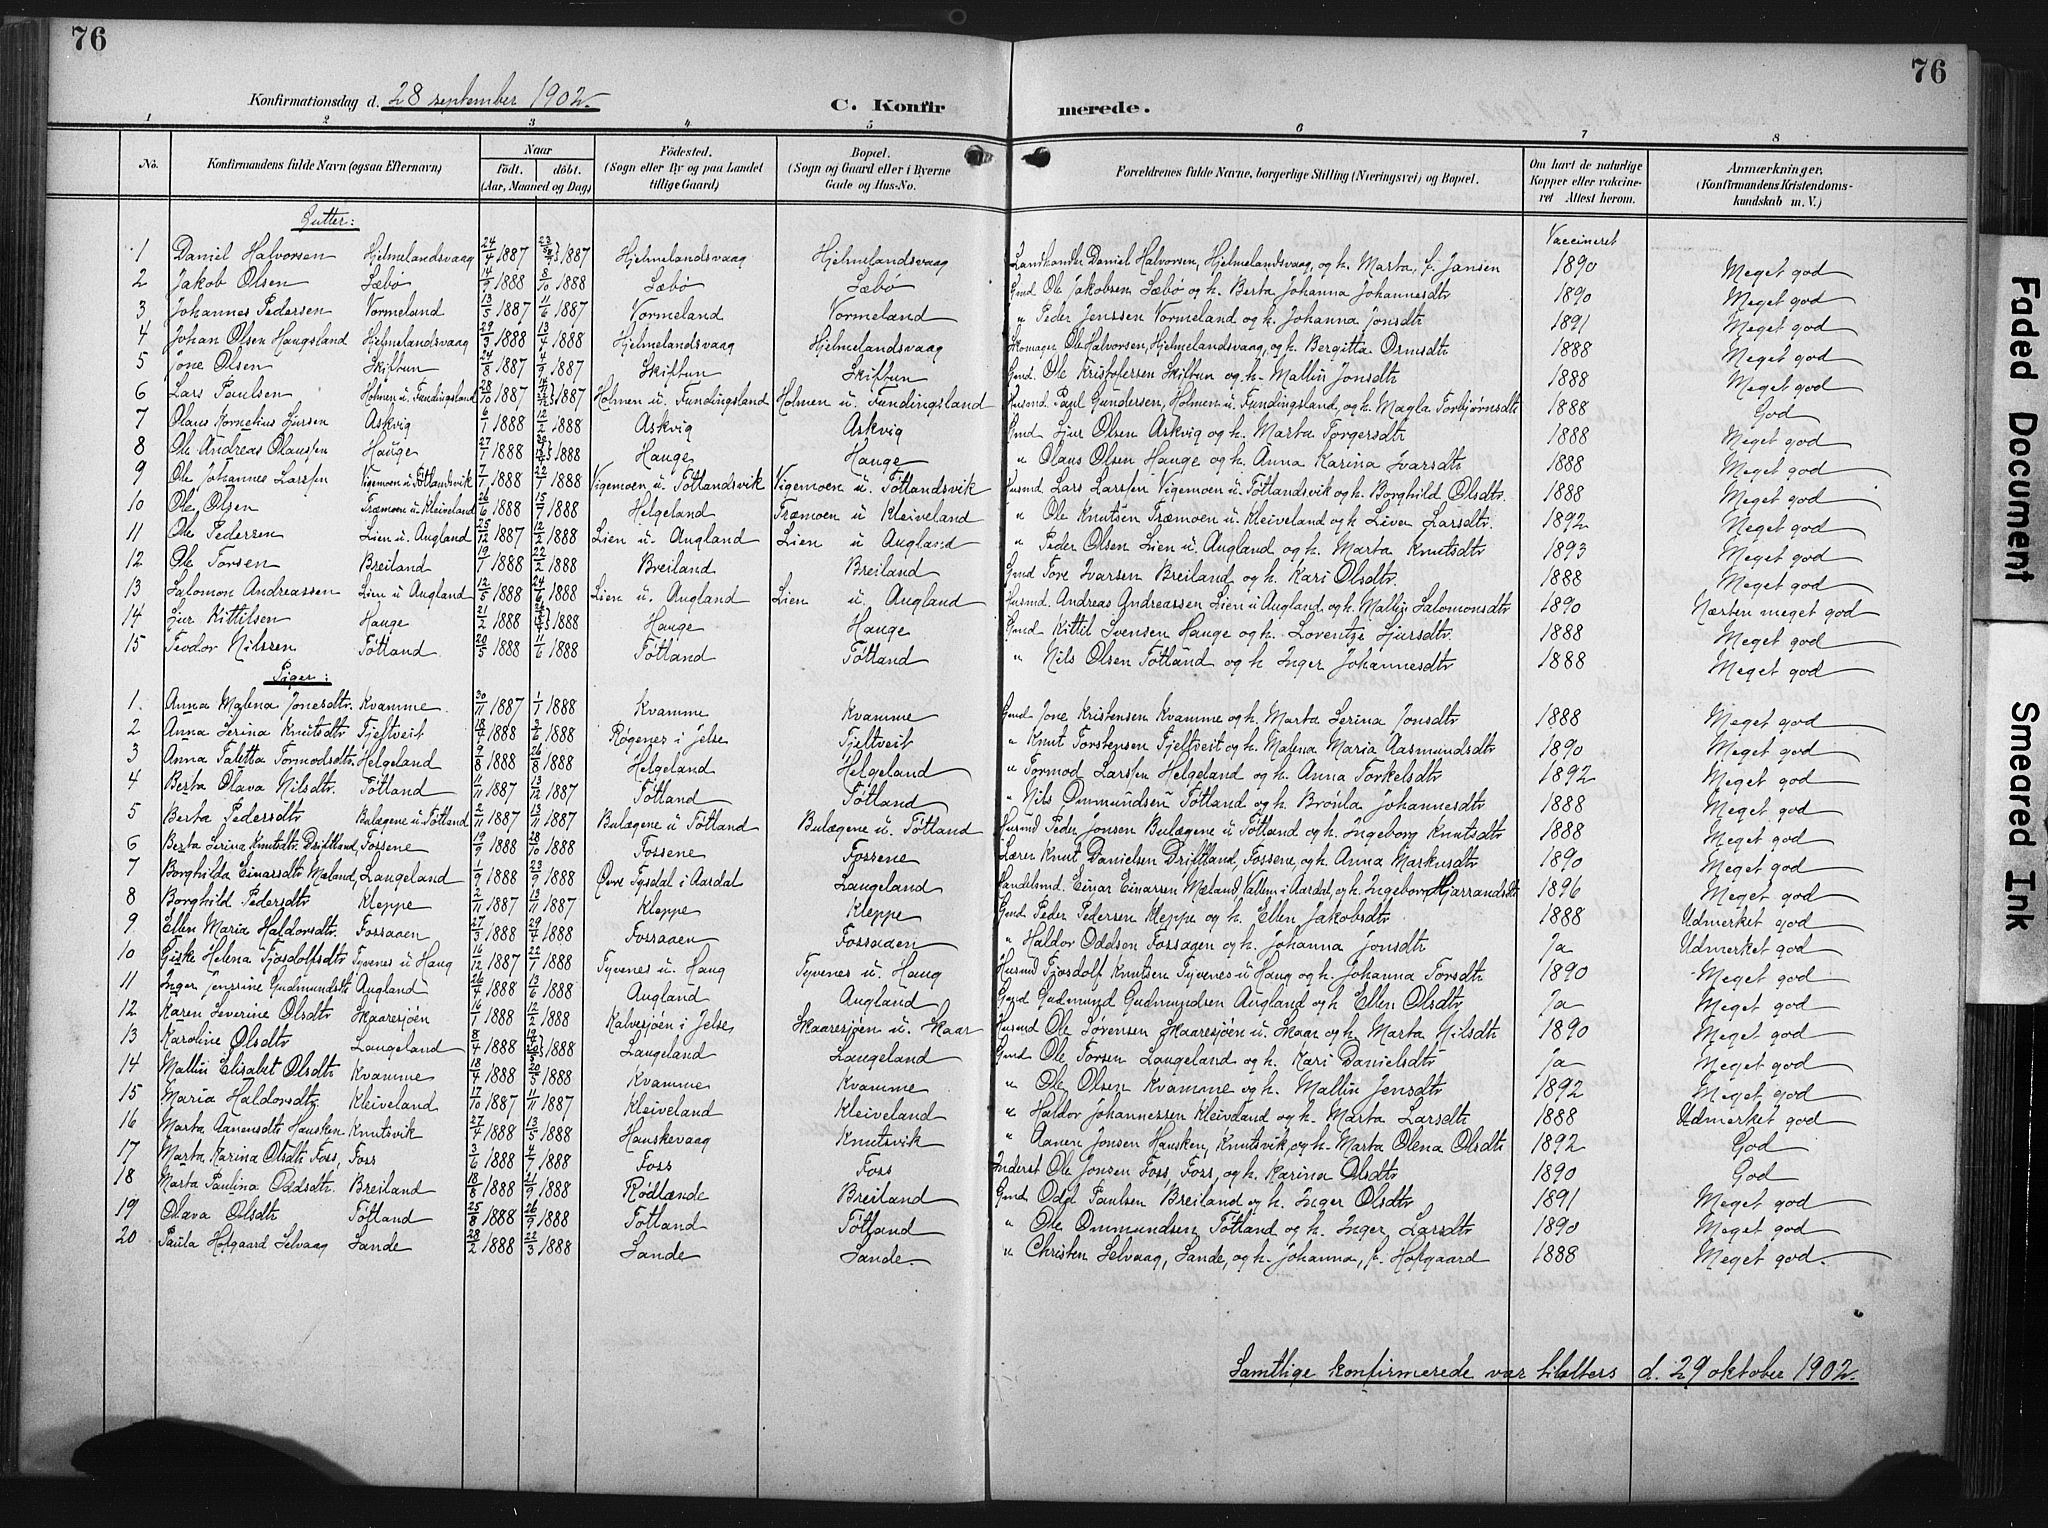 76
76
Konfirmationsdag d. 28 september 1902.
C. Konfirmerede.
1 2 3 4 5 6 7 8
No. Konfirmandens fulde Navn (ogsaa Efternavn) Naar født. (Aar, Maaned og Dag) døbt. Fødested. (Sogn eller By og paa Landet tillige Gaard) Bopæl. (Sogn og Gaard eller i Byerne Gade og Hus-No. Forældrenes fulde Navne, borgerlige Stilling (Næringsvei) og Bopæl. Om havt de naturlige Kopper eller vaccineret Attest herom. Anmærkninger. (Konfirmandens Kristendomskundskab m. V.)
Gutter:
Vaccineret
1 Daniel Halvorsen Hjelmelandsvaag 24/4 1887 1887 Hjelmelandsvaag Hjelmelandsvaag Landhandl. Daniel Halvorsen, Hjelmelandsvaag, og h. Marta, f. Jansen 1890 Meget god
2 Jakob Olsen Sæbø 14/9 1888 8/10 1888 Sæbø Sæbø Gmd Ole Jakobsen Sæbø og h. Berta Johanna Johannesdtr 1890 Meget god
3 Johannes Pedersen Vormeland 13/5 1887 11/6 1887 Vormeland Vormeland " Peder Jenssen Vormeland og h. Johanna Jonsdtr 1891 Meget god
4 Johan Olsen Haugsland Hjelmelandsvaag 29/3 1888 13/4 1888 Hjelmelandsvaag Hjelmelandsvaag Skomager Ole Halvorsen, Hjelmelandsvaag, og h. Bergitta Ormsdtr 1888 Meget god
5 Jone Olsen Skiftun 24/8 1887 4/9 1887 Skiftun Skiftun Gmd. Ole Kristofersen Skiftun og h. Mallin Jonsdtr 1888 Meget god
6 Lars Paulsen Holmen u. Fundingsland 28/10 1887 1887 Holmen u. Fundingsland Holmen u. Fundingsland Husmd Paul Gundersen, Holmen u. Fundingsland, og h. Magla Torbjørnsdtr 1888 God
7 Olaus Kornelius Sjursen Askvig 6/1 1888 12/2 1888 Askvig Askvig Gmd Sjur Olsen Askvig og h. Marta Torgersdtr 1888 Meget god
8 Ole Andreas Olaussen Hauge 27/1 1888 1888 Hauge Hauge " Olaus Olsen Hauge og h. Anna Karina Ivarsdtr 1888 Meget god
9 Ole Johannes Larssen Vigemoen u. Tøtlandsvik 7/1 1888 22/1 1888 Vigemoen u. Tøtlandsvik Vigemoen u. Tøtlandsvik Husmd Lars Larssen Vigemoen u. Tøtlandsvik og h. Borghild Olsdtr. 1888 Meget god
10 Ole Olsen Træmoen u. Kleiveland 26/6 1888 15/7 1888 Helgeland Træmoen u Kleiveland " Ole Knutsen Træmoen u. Kleiveland og h. Liva Larsdtr. 1892 Meget god
11 Ole Pedersen Lien u. Augland 25/12 1887 12/2 1888 Lien u. Augland Lien u Augland " Peder Olsen Lien u. Augland og h. Marta Knutsdtr 1893 Meget god
12 Ole Torsen Breiland 19/1 1888 22/2 1888 Breiland Breiland Gmd Tore Ivarsen Breiland og h. Kari Olsdtr. 1888 Meget god
13 Salomon Andreassen Lien u Augland 12/5 1888 24/6 1888 Lien u. Augland Lien u. Augland Husmd. Andreas Andreassen Lien u Augland og h. Mallin Salomonsdtr 1890 Næsten meget god
14 Sjur Kittilsen Hauge 21/2 1888 1888 Hauge Hauge Gmd Kittil Svensen Hauge og h. Lorentze Sjursdtr. 1888 Meget god
15 Teodor Nilssen Tøtland 20/5 1888 11/6 1888 Tøtland Tøtland " Nils Olsen Tøtland og h. Inger Johannesdtr 1888 Meget god
Piger:
1 Anna Malena Jonesdtr. Kvamme 30/11 1887 1/1 1888 Kvamme Kvamme Gmd Jone Kristensen Kvamme og h. Marta Serina Jonsdtr 1888 Meget god
2 Anna Serina Knutsdtr Fjeltveit 18/4 1888 3/6 1888 Røgenes i Jelse Fjeltveit " Knut Torstensen Fjeltveit og h. Malena Maria Aasmundsdtr 1890 Meget god
3 Anna Taletta Tormodsdtr. Helgeland 9/8 1888 26/8 1888 Helgeland Helgeland " Tormod Larssen Helgeland og h. Anna Torkelsdtr 1892 Meget god
4 Berta Olava Nilsdtr. Tøtland 11/11 1887 13/12 1887 Tøtland Tøtland " Nils Ommundsen Tøtland og h. Brønla Johannesdtr 1888 Meget god
5 Berta Pedersdtr Bulægene u. Tøtland 2/11 1887 13/11 1887 Bulægene u Tøtland Bulægene u. Tøtland Husmd Peder Jonsen Bulægene u Tøtland og h. Ingeborg Knutsdtr 1888 Meget god
6 Berta Serina Knutsdtr. Driftland, Fossene 19/9 1888 28/10 1888 Fossene Fossene Lærer Knut Danielsen Driftland, Fossene, og h. Anna Markusdtr 1890 Meget god
7 Borghilda Einarsdtr Mæland, Langeland 1/9 1888 23/9 1888 Øvre Tysdal i Aardal Langeland Handelsmd. Einar Einarsen Mæland, Vallem i Aardal, og h. Ingeborg Hjarrandsdtr 1896 Meget god
8 Borghild Pedersdtr Kleppe 2/11 1887 13/11 1887 Kleppe Kleppe Gmd Peder Pedersen Kleppe og h. Ellen Jakobsdtr 1888 Udmerket god
9 Ellen Maria Haldorsdtr. Fossaaen 27/3 1888 29/4 1888 Fossaaen Fossaaen " Haldor Odelson Fossaaen og h. Johanna Jonsdtr Ja Udmerket god
10 Giske Helena Fjosdolfsdtr Tyvenes u Haug 16/12 1887 22/1 1888 Tyvenes u. Haug Tyvenes u. Haug Husmd Fjosdolf Knutsen Tyvenes u Haug og h. Johanna Torsdtr 1890 Meget god
11 Inger Jensine Gudmundsdtr Augland 26/4 1888 13/6 1888 Augland Augland Gmd Gudmund Gudmundsen Augland og h Ellen Olsdtr Ja Meget god
12 Karen Severine Olsdtr Skaaresjøen 16/1 1888 12/2 1888 Kalvesjøen i Jelse Skaaresjøen u. Skaar Husmd Ole Sørensen Skaaresjøen u. Skaar og h. Marta Nilsdtr 1890 Meget god
13 Karoline Olsdtr Langeland 8/4 1888 1888 Langeland Langeland Gmd. Ole Torsen Langeland og h. Kari Danielsdtr Ja Meget god
14 Mallin Elisabet Olsdtr Kvamme 18/4 1888 20/5 1888 Kvamme Kvamme " Ole Olsen Kvamme og h. Mallin Jensdtr 1892 Meget god
15 Maria Haldorsdtr Kleiveland 1/10 1887 11/11 1887 Kleiveland Kleiveland " Haldor Johannessen Kleiveland og h. Marta Larsdtr 1888 Udmerket god
16 Marta Aanensdtr Hausken Knutsvik 27/4 1888 13/5 1888 Hauskevaag Knutsvik " Aanen Jonsen Hausken, Knutsvik, og h. Marta Olena Olsdtr 1892 God
17 Marta Karina Olsdtr Foss, Foss 3/6 1888 4/7 1888 Foss Foss Inderst Ole Jonsen Foss, Foss, og h. Karina Olsdtr 1890 God
18 Marta Paulina Oddsdtr. Breiland 18/8 1888 21/9 1888 Rødlænde Breiland Gmd Odd Paulsen Breiland og h. Inger Olsdtr 1891 Meget god
19 Olava Olsdtr Tøtland 25/8 1888 26/9 1888 Tøtland Tøtland " Ole Ommundsen Tøtland og h. Inger Larsdtr 1890 Meget god
20 Paula Hofgaard Selvaag Sande 28/2 1888 22/3 1888 Sande Sande. " Christen Selvaag, Sande, og h. Johanna, f. Hofgaard 1888 Meget god.
Samtlige konfirmerede var tilalters d. 29 oktober 1902.
Faded Document
Smeared Ink